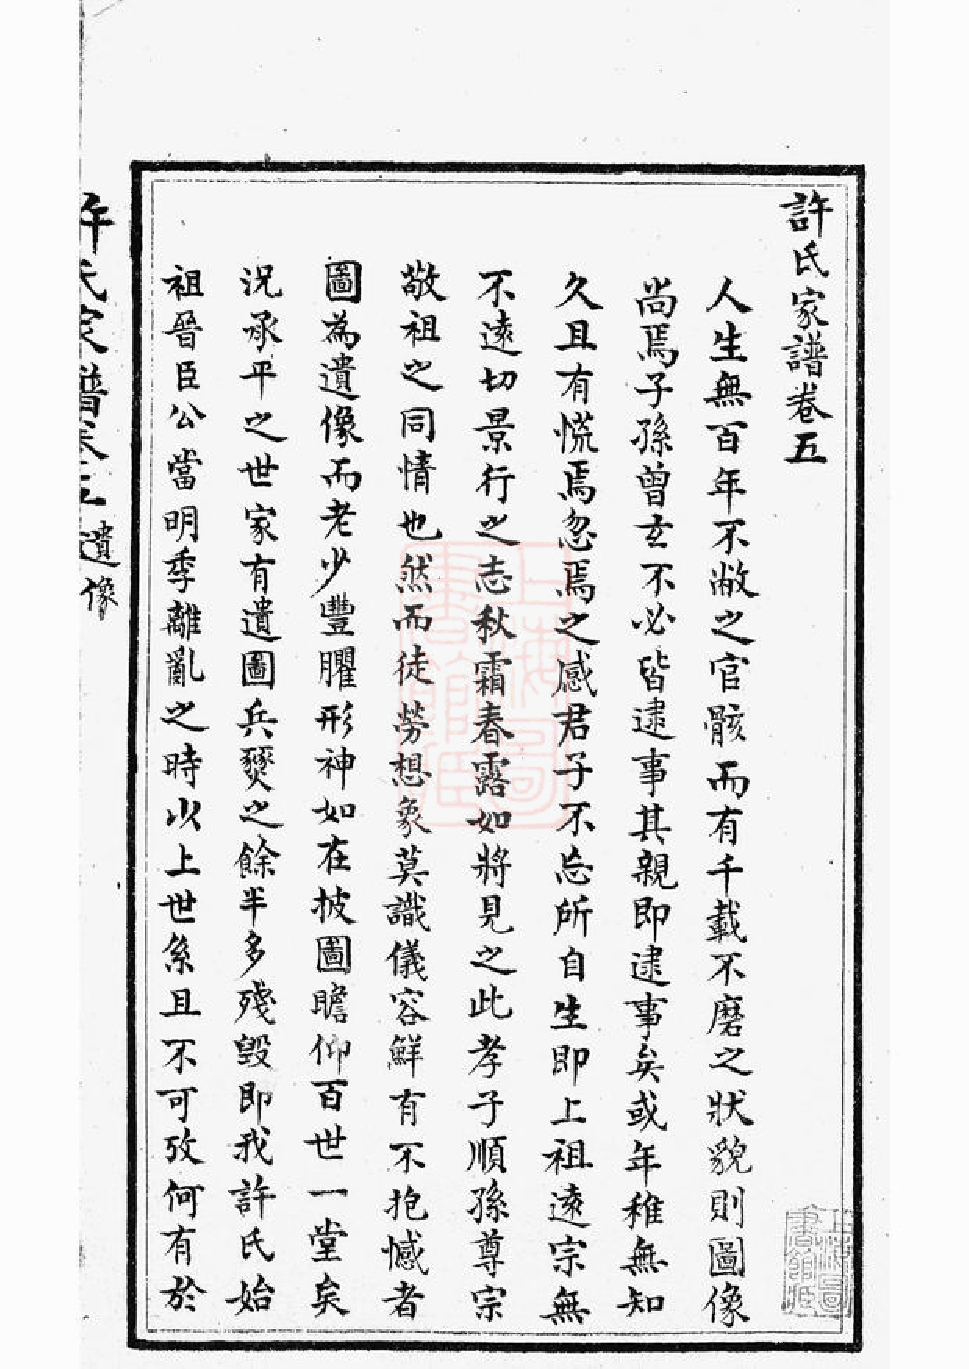 許氏家譜卷五
人生無百年不敝之官骸而有千載不磨之狀貌則圖像
尚焉子孫曾玄不必皆逮事其親即逮事矣或年稚無知
久且有慌焉忽焉之感君子不忘所自生即上祖遠宗無
不遠切景行之志秋霜春露如將見之此孝子順孫尊宗
敬祖之同情也然而徒勞想象莫識儀容鮮有不抱憾者
圖為遺像而老少豐臞形神如在披圖瞻仰百世一堂矣
況承平之世家有遺圖兵燹之餘半多殘毀即我許氏始
祖晉臣公當明季離亂之時以上世系且不可攷何有於
許氏家譜卷五 遺像
上海圖書館藏
上海圖書館藏